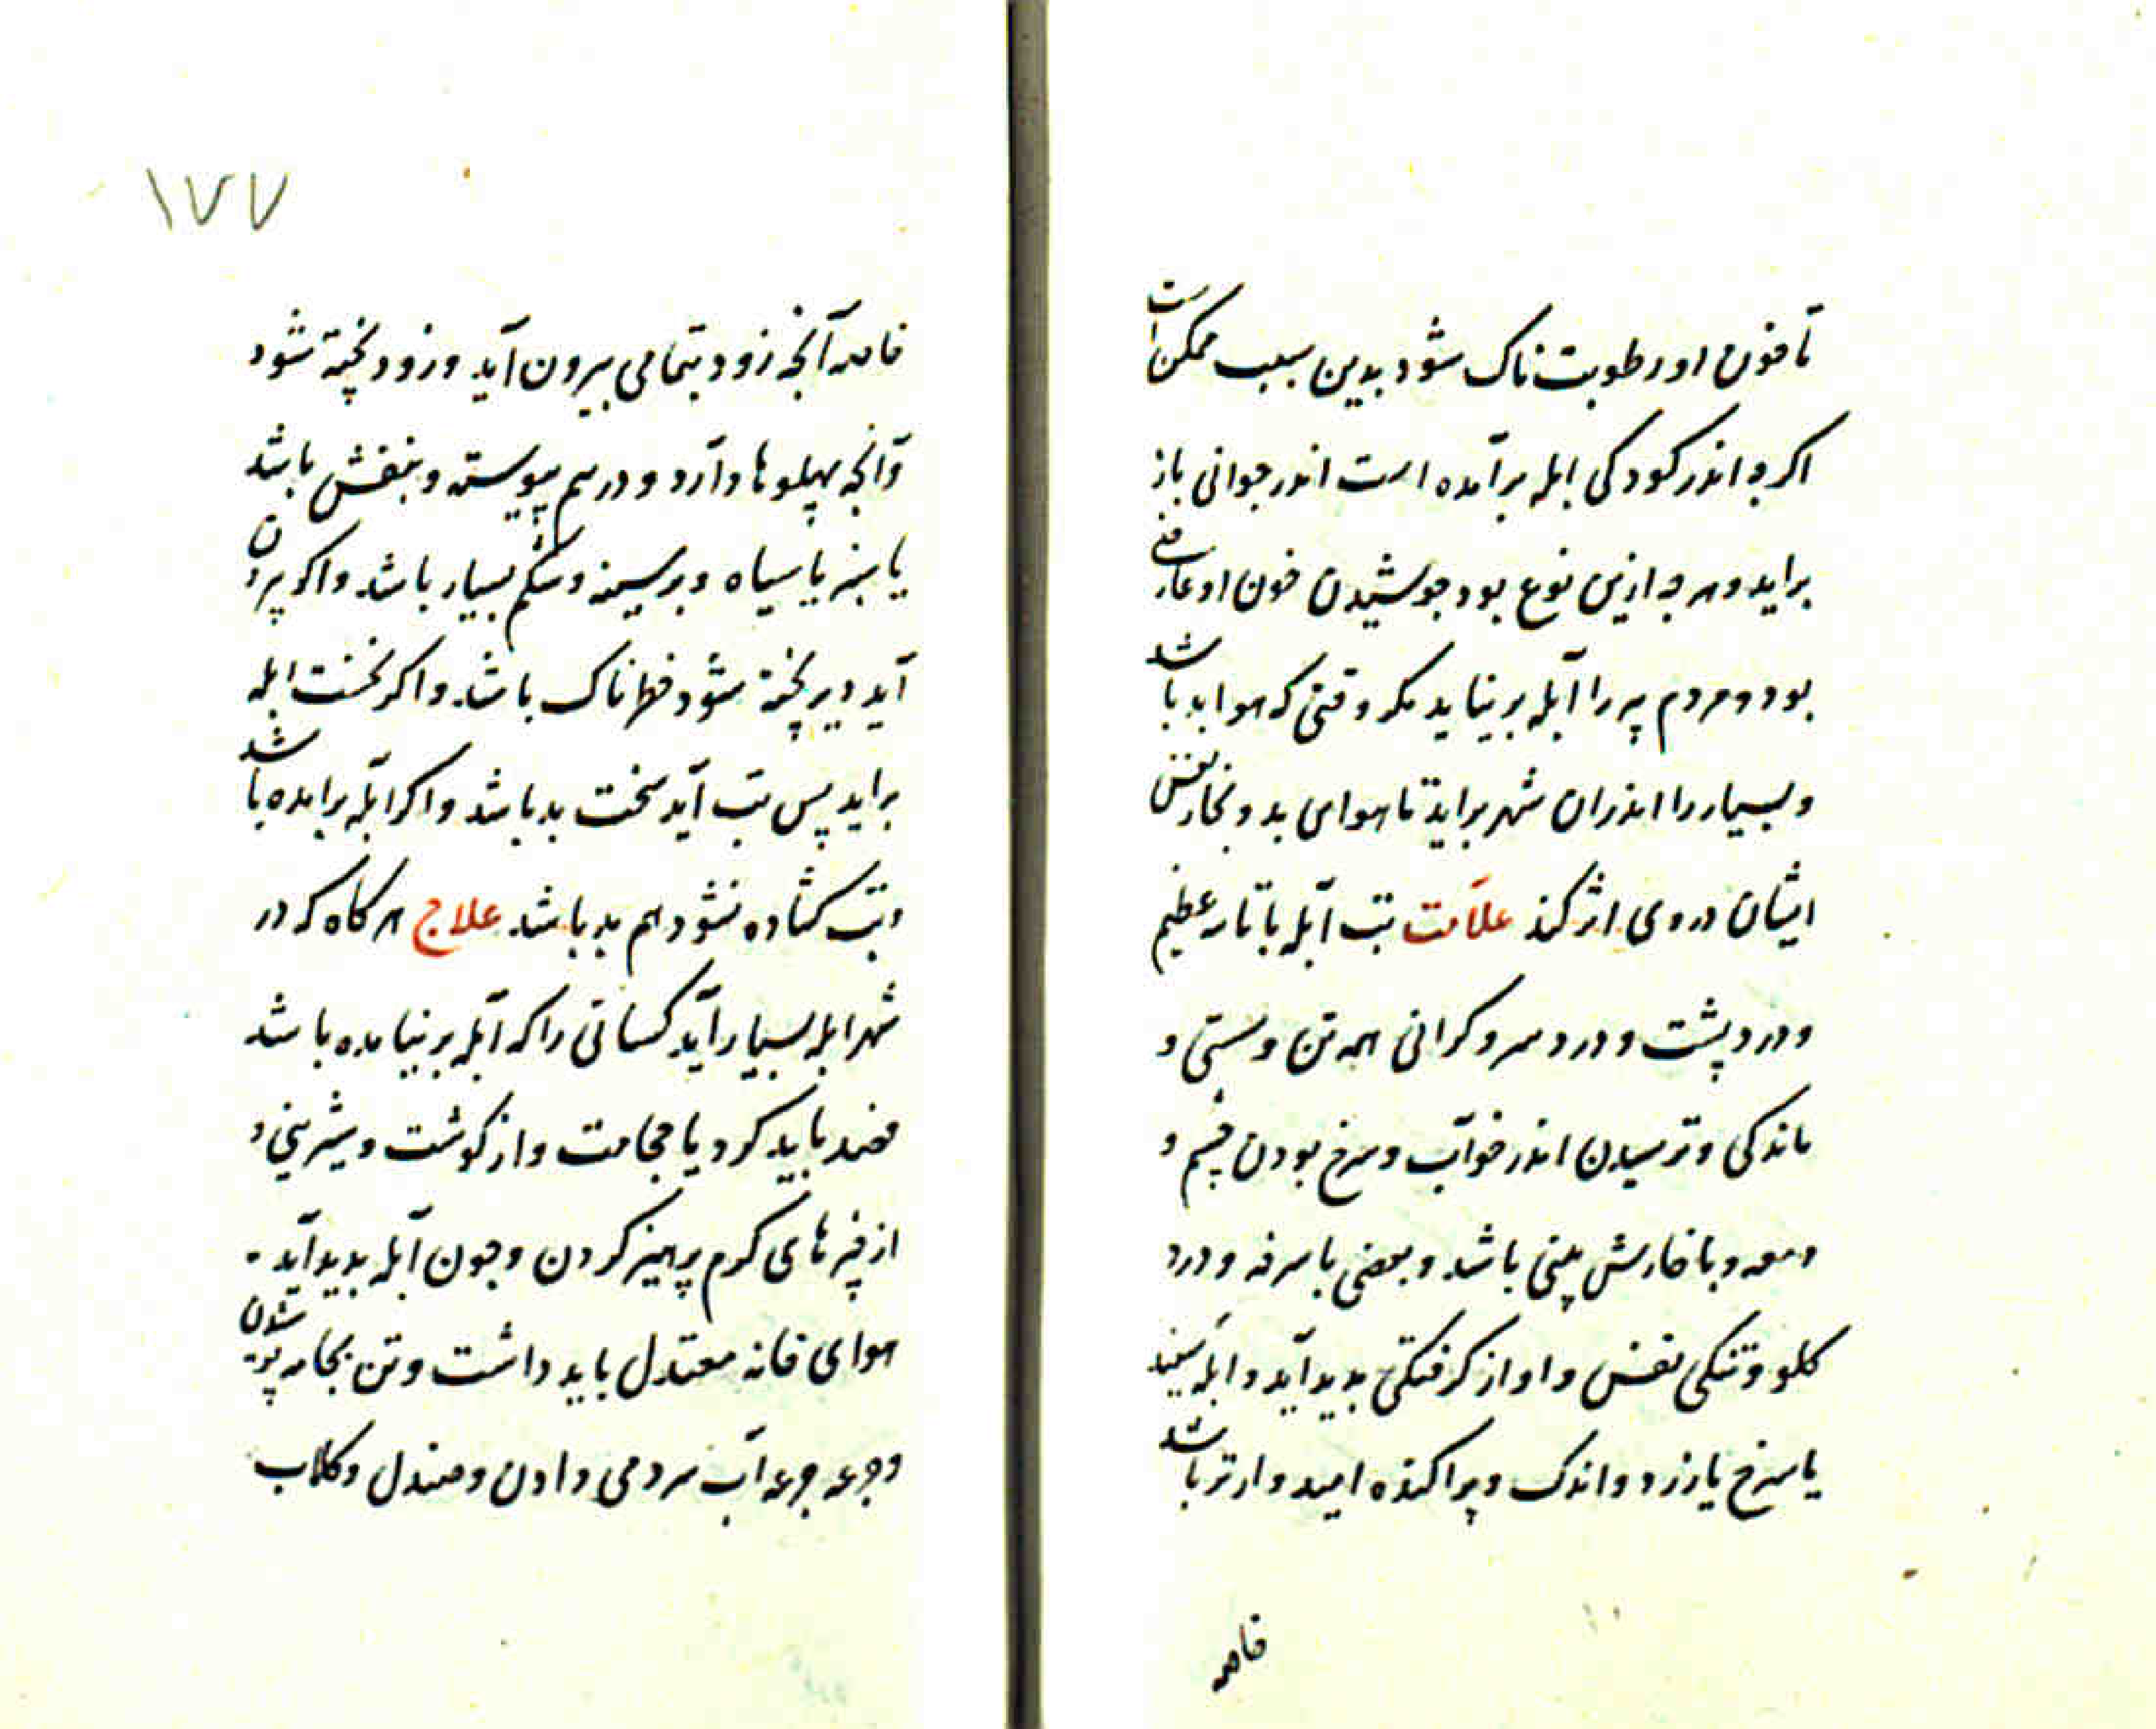 تا خون او رطوبت ناک شود بدین سبب ممکن است
اکر چه اندر کودکی ابله برآمده است اندر جوانی باز
براید و هر چه ازین نوع بود جوشیدن خون او عارضی
بود و مردم پیر را آبله برنیاید مکر وقتی که هوا بد باشد
و بسیار را اندران شهر براید تا هوای بد و بخار نفس
ایشان در وی اثر کند علامت تب آبله با تاسه عظیم
و درد پشت و درد سر و کرانی همه تن و سستی و
ماندکی و ترسیدن اندر خوآب و سرخ بودن چشم و
دمعه و با خارش بینی باشد و بعضی با سرفه و درد
کلو و تنکی نفس و اواز کرفتکی بدید آید و ابله سفید
یا سرخ یا زرد و اندک و پراکنده امیدوارتر باشد
خاصه
۱۷۷
خاصه آنچه زود بتمامی بیرون آید و زود پخته شود
وآنچه پهلوها دآرد و در هم پیوسته و بنفش باشد
یا سبز یا سیاه و بر سینه و شکم بسیار باشد و اکر بیرون
آید دیر پخته شود خطرناک باشد و اکر نخست ابله
براید پس تب آید سخت بد باشد و اکر ابله برامده باشد
و تب کشاده نشود هم بد باشد علاج هر کاه که در
شهر ابله بسیار آید کسانی را که آبله برنیامده باشد
فصد باید کرد یا حجامت و از کوشت و شیرینی و
از چیزهای کرم پرهیز کردن و چون آبله بدید آید
هوای خانه معتدل باید داشت و تن بجامه پوشیدن
و جرعه جرعه آب سرد می دادن و صندل و کلاب